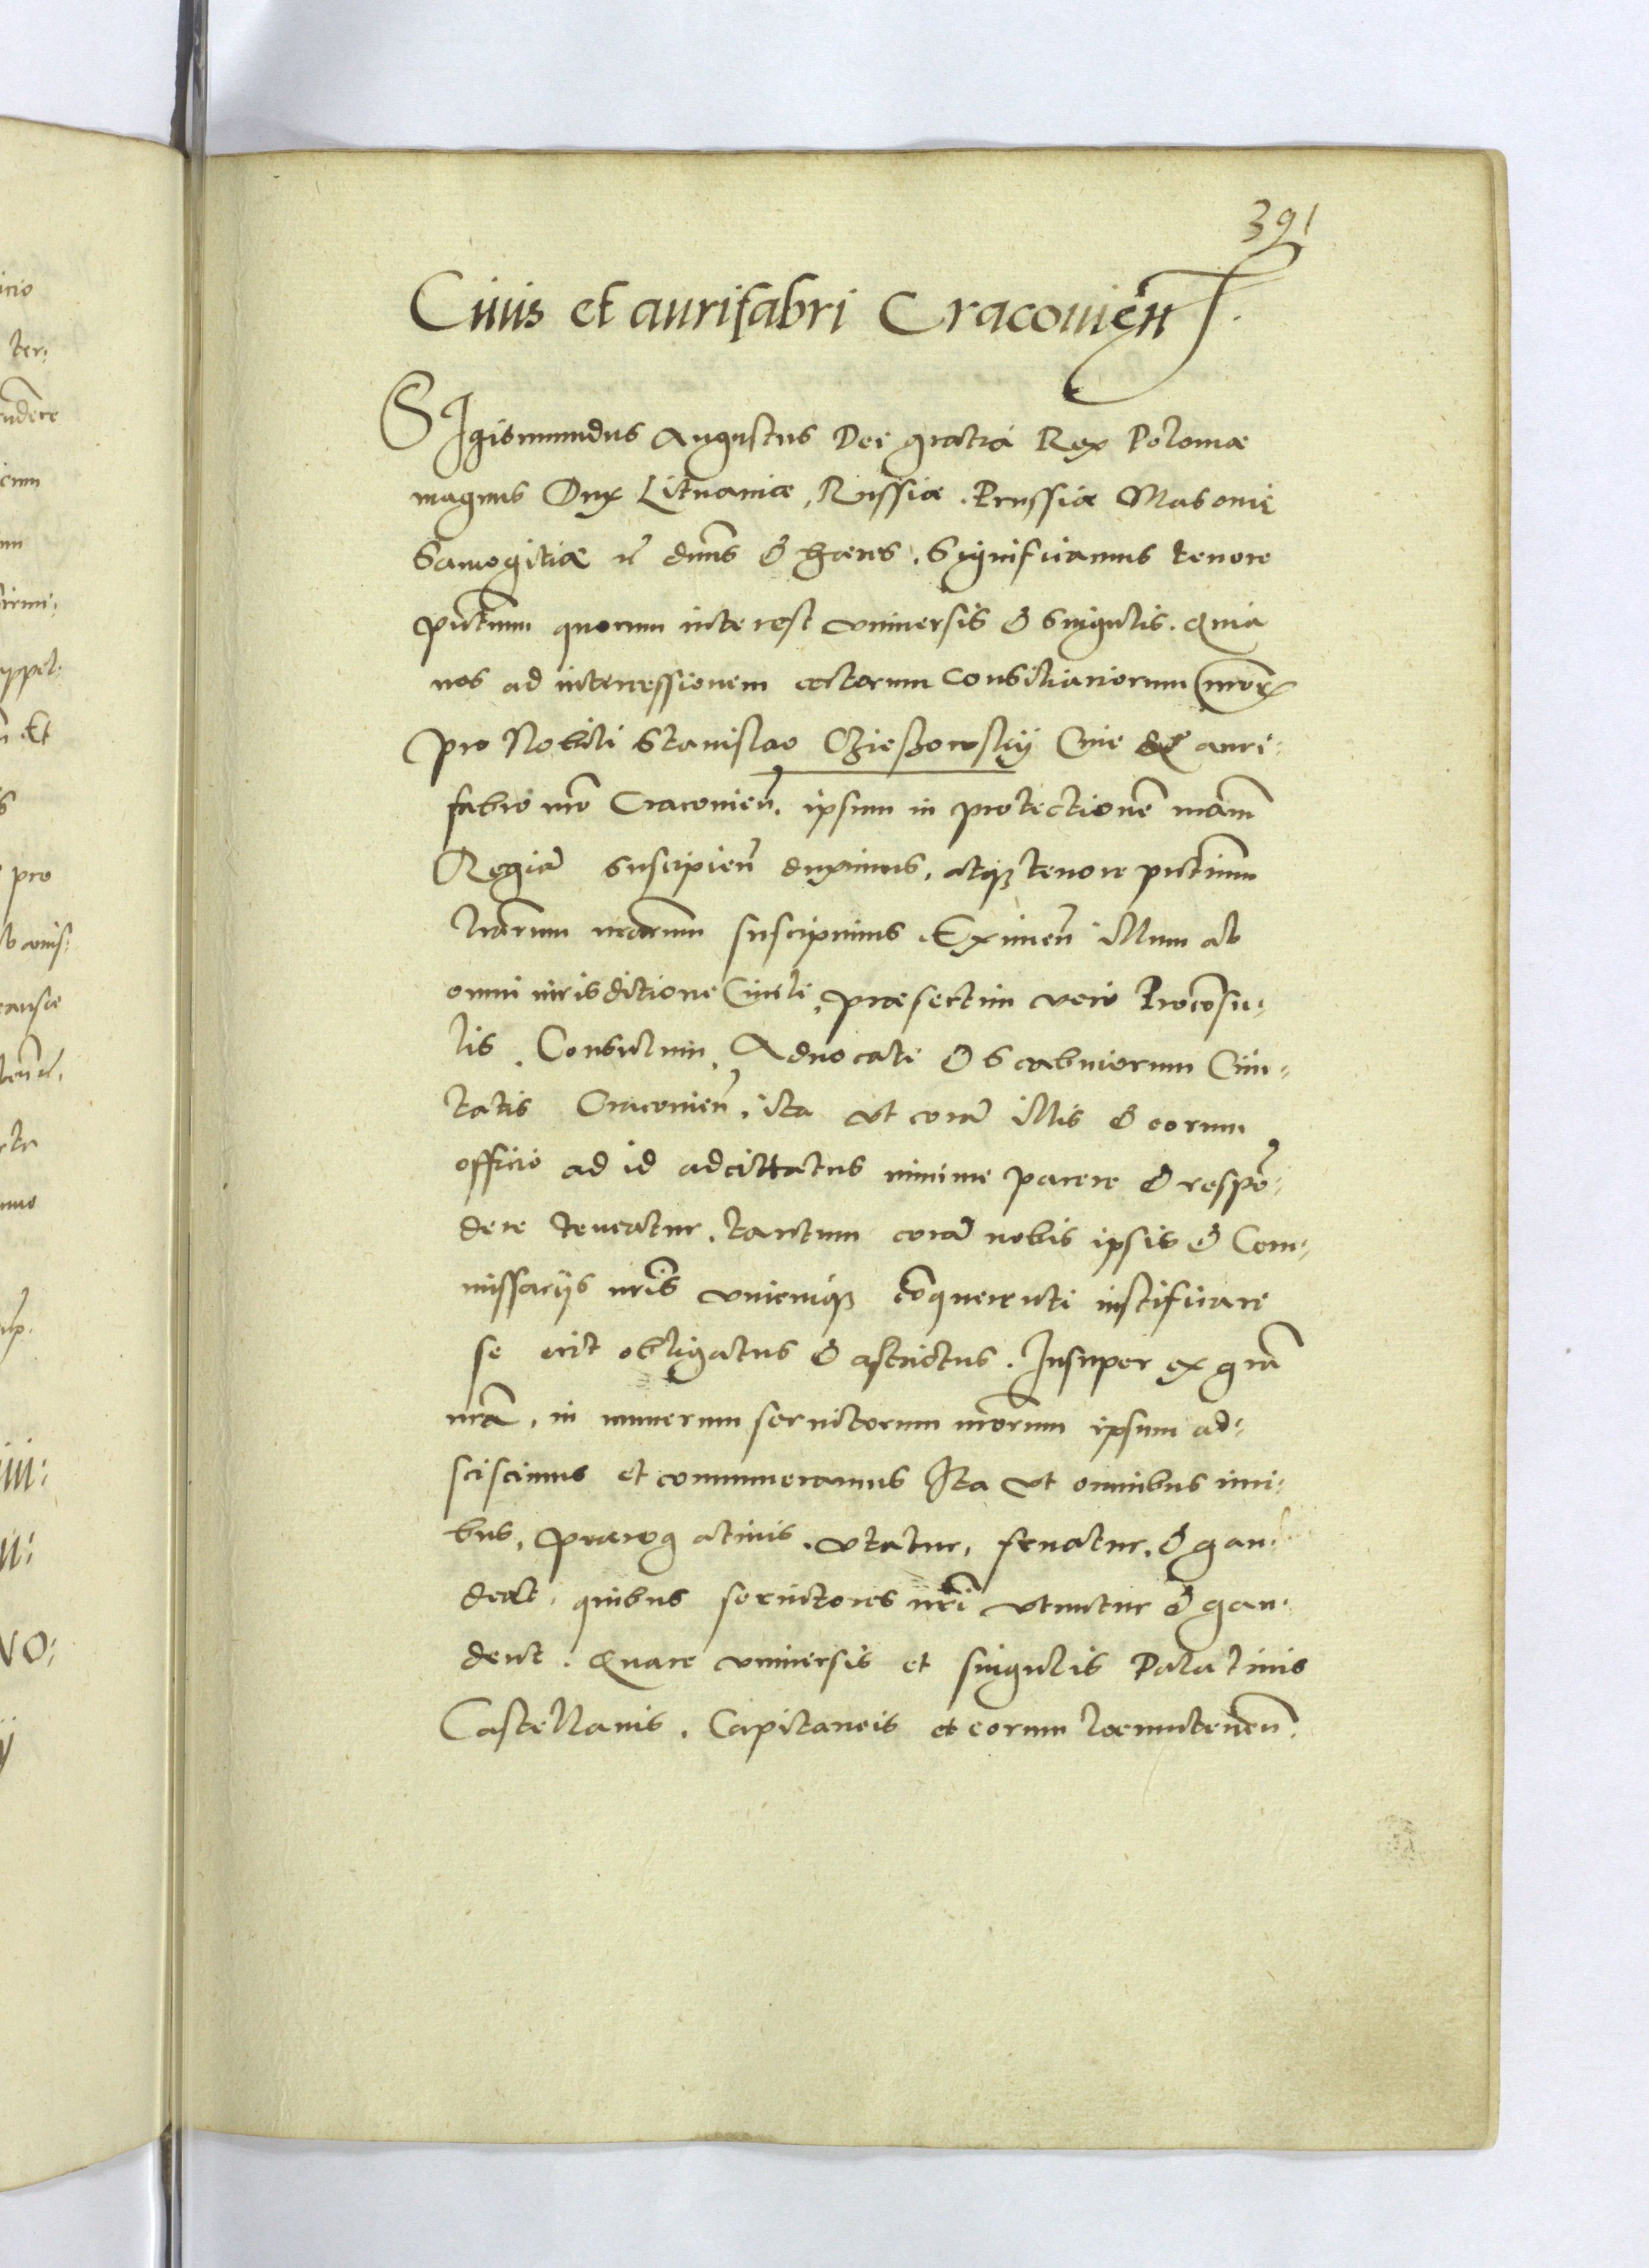 391
Ciuis et aurifabri Cracouien̄.
SIgismundus Augustus Dei gratia Rex Poloniæ
magnus Dux Lituaniæ, Russiæ. Prussiæ Masoniȩ
Samogitiæ &c̄ dnūs & hæres. Significamus tenore
pn̄tium quorum interest vniuersis & singulis. Quia
nos ad intercessionem certorum Consiliariorum nr̄orꝝ
pro Nobili Stanislao Czieszowskij Ciue & auri-
fabro nr̄o Cracouien̄. ipsum in protectionē nr̄am
Regiā suscipien̄ duximus, atqꝫ tenore pn̄tium
lr̄arum nr̄arum suscipimus. Eximen̄ illum ab
omni iurisditione Ciuili, præsertim vero Procōsu-
lis. Consulum, Aduocati & Scabuiorum Ciui-
tatis Cracouien̄. ita vt corā illis & eorum
officio ad id adcittatus minime parere & respō-
dere teneatur. tantum corā nobis ipsis & Com-
missarijs nr̄is vnicuiqꝫ cōquerenti iustificare
se erit obligatus & astrictus. Insuper ex grā
nr̄a, in numerum seruitorum nr̄orum ipsum ad-
sciscimus et connumeramus Ita vt omnibus iuri-
bus, prærogatiuis. vtatur, fruatur, & gau-
deat. quibus seruitores nr̄i vtuntur & gau-
dent. Quare vniuersis et singulis Palatinis
Castellanis. Capitaneis et eorum locumtenen̄.
icio
ter,
cum
appel.
Et
pro